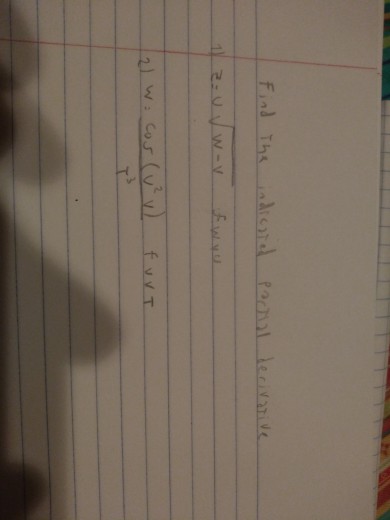 Find The indicated partial derivative
1) z = u √(w-v) f w v u
2) w = cos(u²v) / T³ f v v T